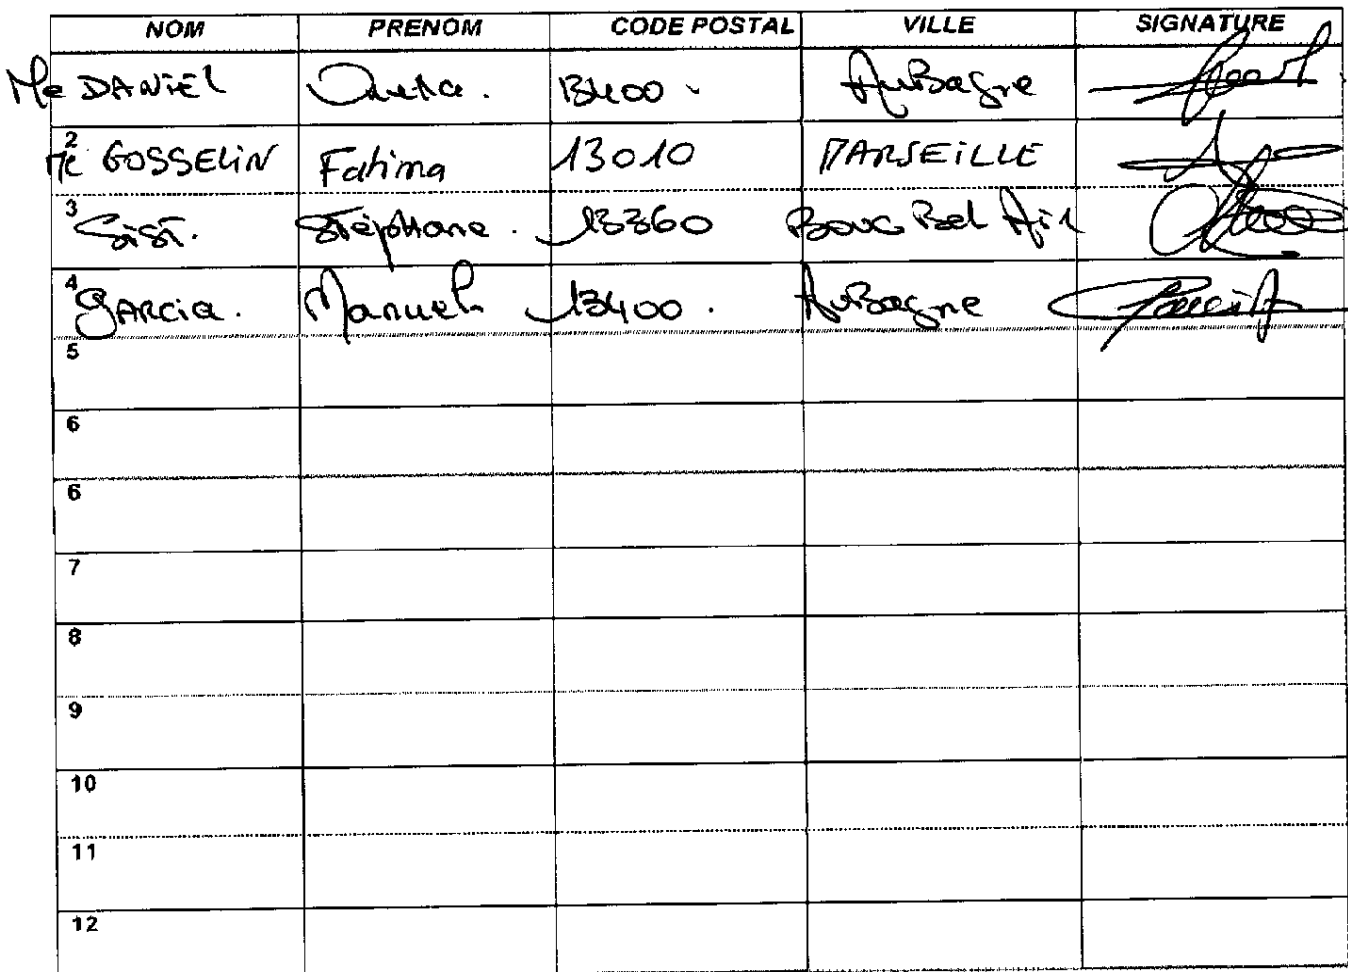 NOM PRENOM CODE POSTAL VILLE SIGNATURE
Me DANIEL 13400 . AuBagne
2 Me GOSSELIN Fatima 13010 MARSEILLE
3 Sisi. Stephane . 13360 Bouc Bel Air
4 GARCia . Manuel 13400 . AuBagne
5
6
6
7
8
9
10
11
12